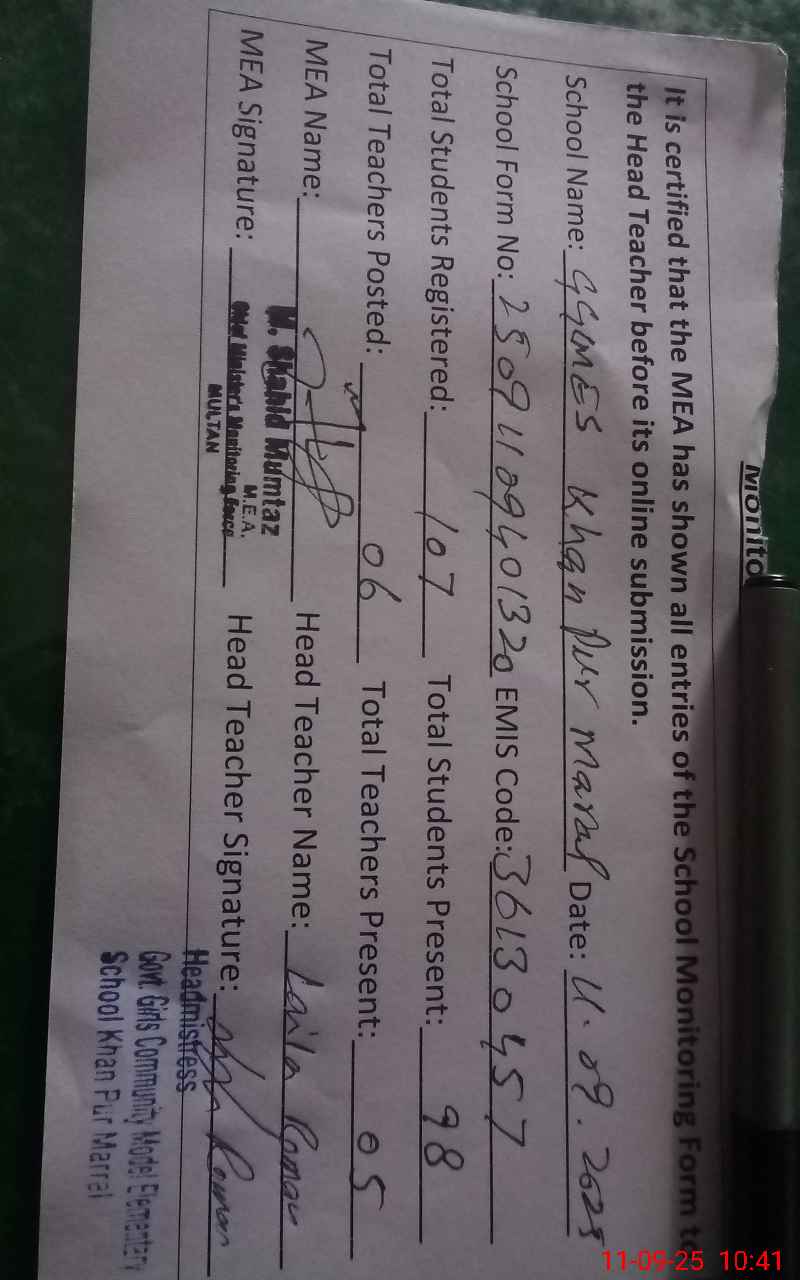 Monito
It is certified that the MEA has shown all entries of the School Monitoring Form to
the Head Teacher before its online submission.
School Name: GGCMES Khan Pur Maral Date: 11.09.2025
School Form No: 25091109401320 EMIS Code: 36130457
Total Students Registered: 107 Total Students Present: 98
Total Teachers Posted: 06 Total Teachers Present: 05
MEA Name: Head Teacher Name: Laila Roman
M. Shahid Mumtaz
M.E.A.
MEA Signature: Chief Minister's Monitoring Force Head Teacher Signature:
MULTAN
Headmistress
Govt. Girls Community Model Elementary
School Khan Pur Marral
11-09-25 10:41